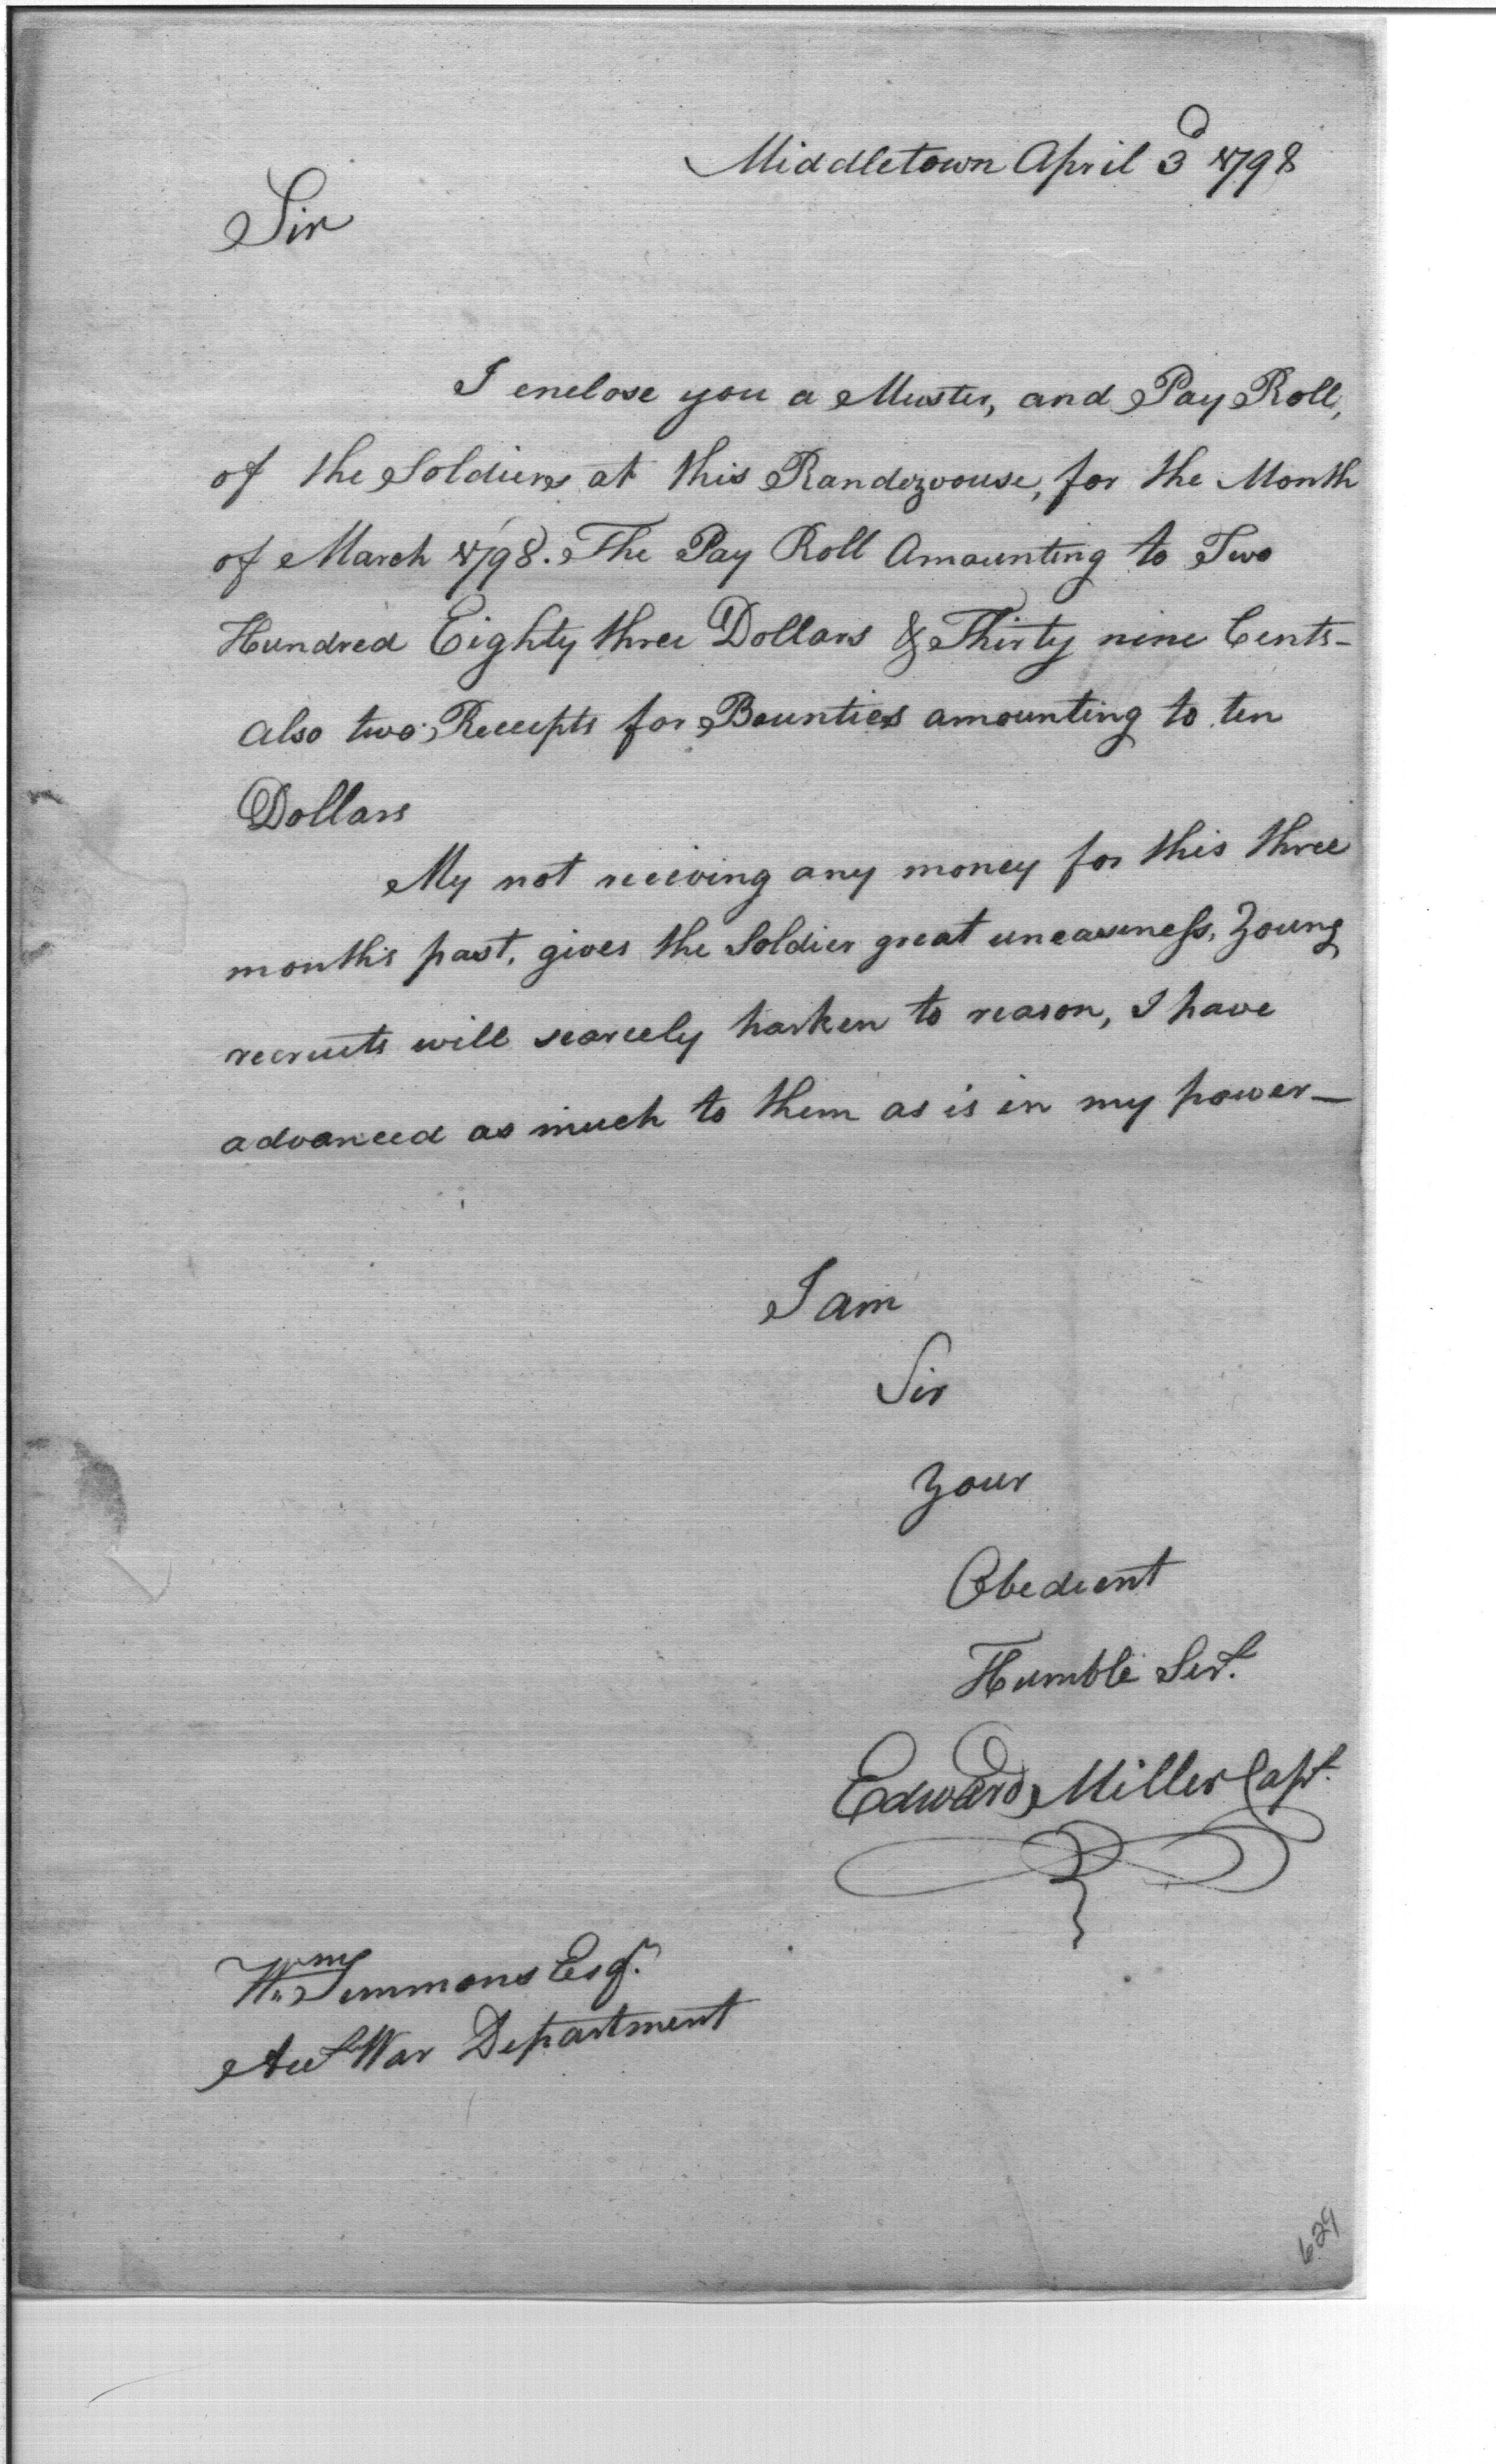 Middletown April 3d 1798
Sir
I enclose you a Muster, and Pay Roll,
of the Soldiers at this Randezvouse, for the Month
of March 1798. The Pay Roll Amounting to Two
Hundred Eighty three Dollars & Thirty nine Cents-
Also two Receipts for Bounties amounting to ten
Dollars
My not reciving any money for this three
months past, gives the Soldier great uneasiness, Young
recruits will scarcely harken to reason, I have
advanced as much to them as is in my power—
I am
Sir
Your
Obedient
Humble Sert.
Edward Miller Capt.
Wm Simmons Esqr.
Act War Department
629